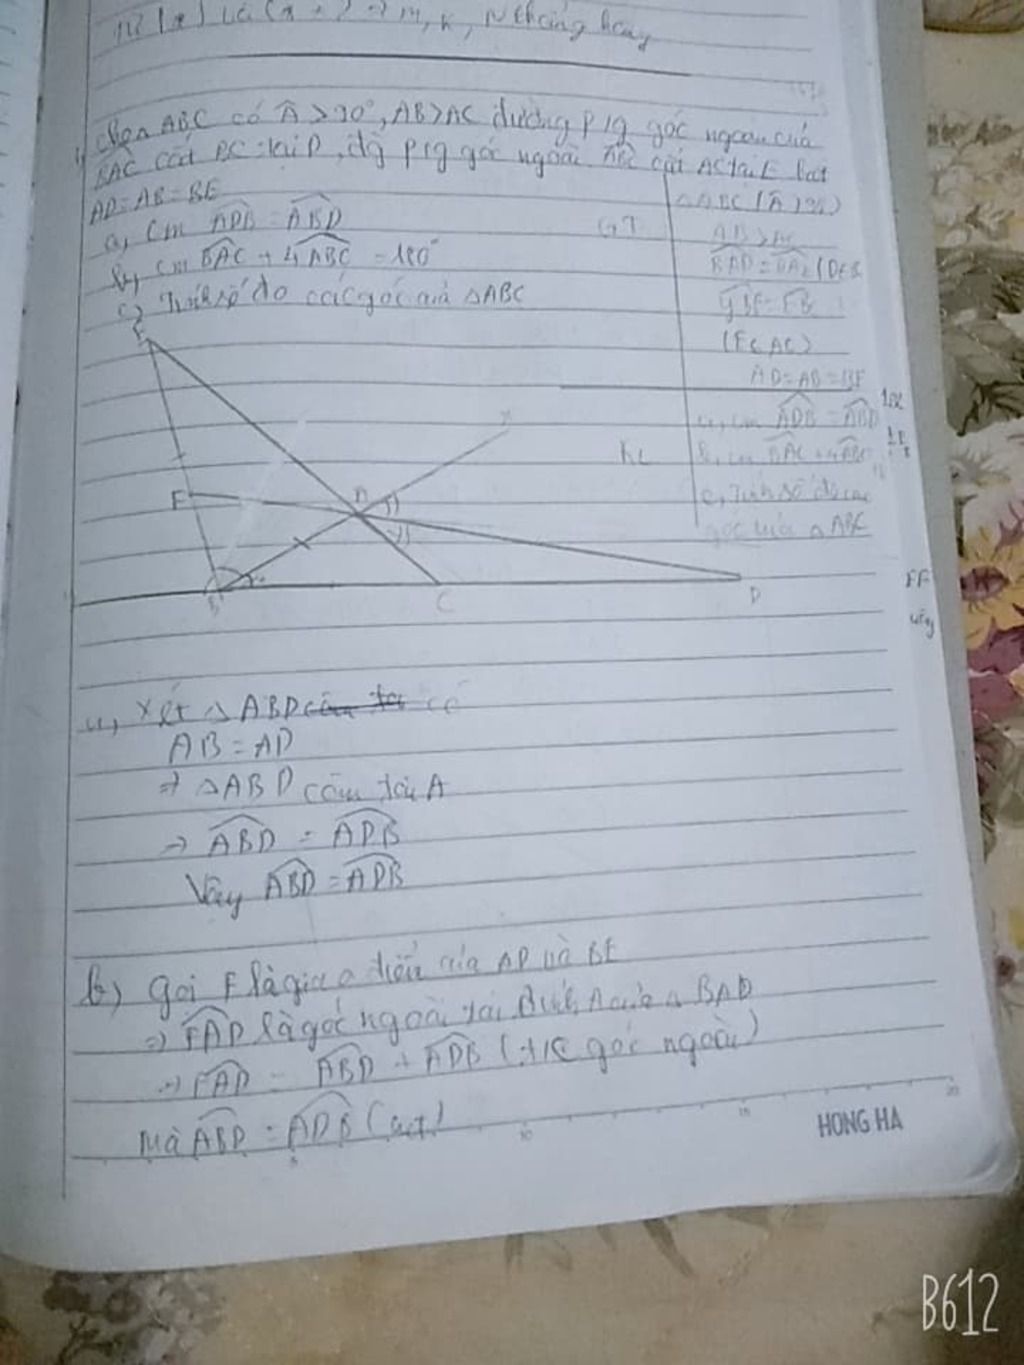 M, K, N thẳng hàng
Cho △ABC có Â > 90°, AB > AC đường p/g góc ngoài của
BAC cắt BC tại D, đg p/g góc ngoài ABC cắt AC tại E biết
AD = AB = BE
a, Cm ADB = ABD
b, cm BAC + 4ABC = 180°
c, Tính số đo các góc của △ABC
GT
△ABC (Â > 90)
AB > AC
(E ∈ AC)
AD = AB = BE
KL
a, cm ADB = ABD
b, cm BAC + 4ABC
c, Tính số đo các
góc của △ABC
E
x
F
A
B
C
D
a, Xét △ABD cân tại có
AB = AD
⇒ △ABD cân tại A
⇒ ABD = ADB
Vậy ABD = ADB
b) Gọi F là giao điểm của AD và BE
⇒ FAD là góc ngoài tại đỉnh A của △BAD
⇒ FAD = ABD + ADB (t/c góc ngoài)
Mà ABD = ADB (cmt)
5 10 15 20
HONG HA
B612